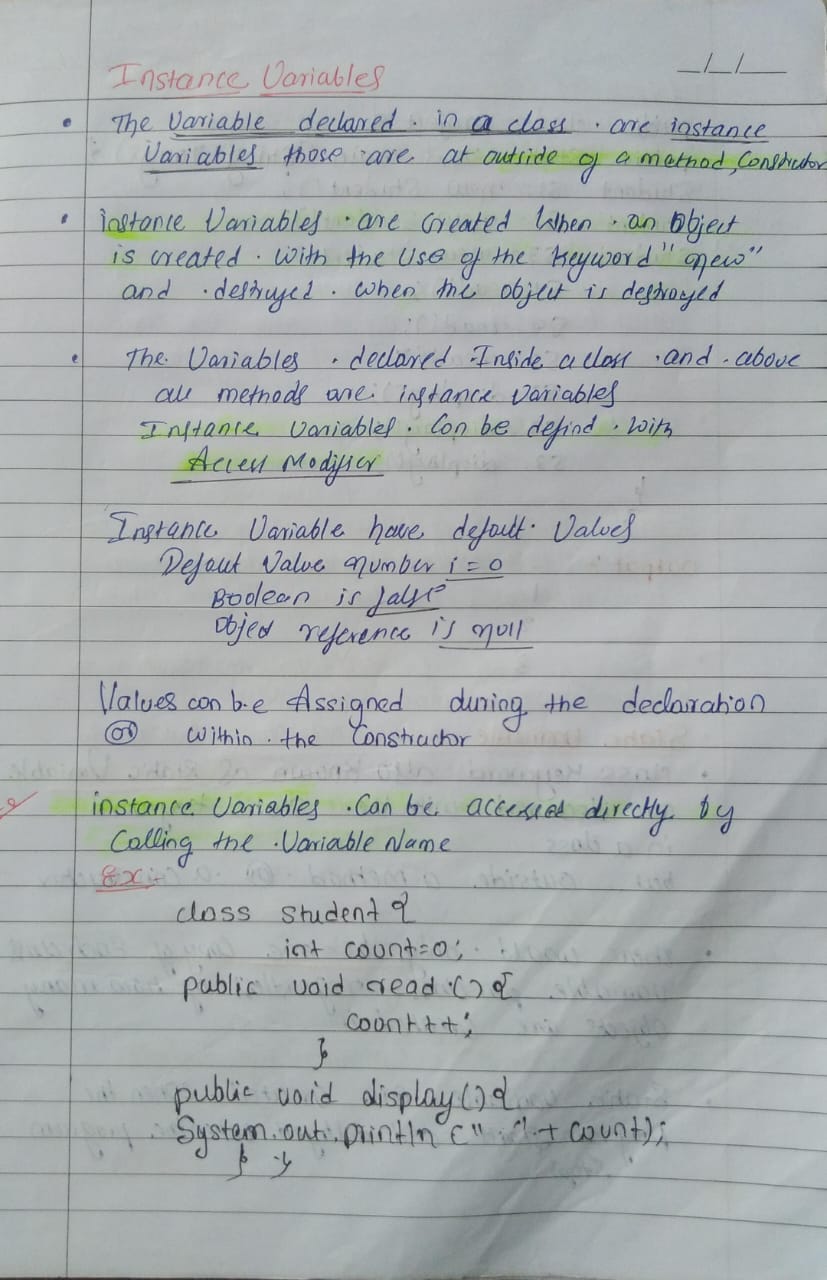 Instance Variables
_/_/__
• The Variable declared in a class are instance
Variables those are at outside of a method, Constructor
• instance Variables are Created When an Object
is created with the Use of the keyword "new"
and destroyed when the object is destroyed
• The Variables declared Inside a class and above
all methods are instance Variables
Instance Variables Can be defind with
Access Modifier
Instance Variable have default Values
Defaut Value number i = 0
Boolean is false
Object reference is null
Values can be Assigned during the declaration
or within the Constructor
instance Variables Can be accessed directly by
Calling the Variable Name
Ex:-
class student {
int count=0;
public void read () {
count++;
}
public void display() {
System.out.println (" " + count);
} }